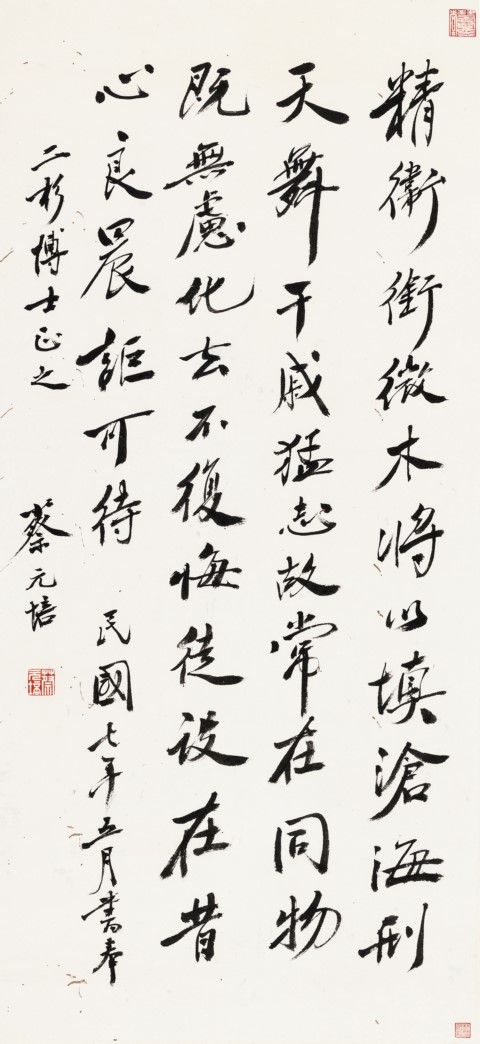 精衛銜微木將以填滄海刑
天舞干戚猛志故常在同物
既無慮化去不復悔徒設在昔
心良晨詎可待 民國七年五月書奉
二杉博士正之 蔡元培